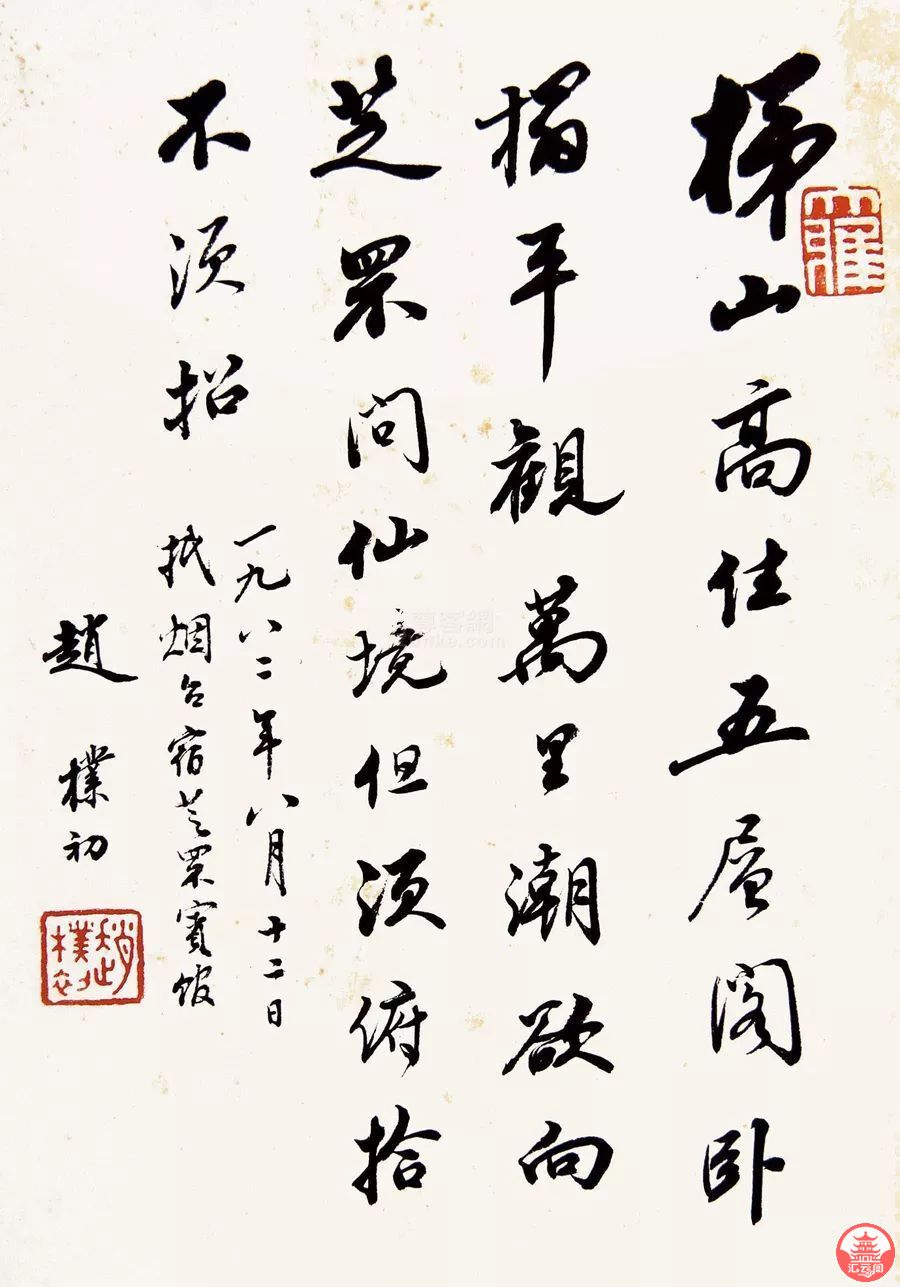 梯山高住五层阁卧
榻平觀萬里潮欲向
芝罘问仙境但须俯拾
不须招
一九八二年八月十二日
抵烟台宿芝罘賓馆
趙樸初
趙樸初
汇云阁